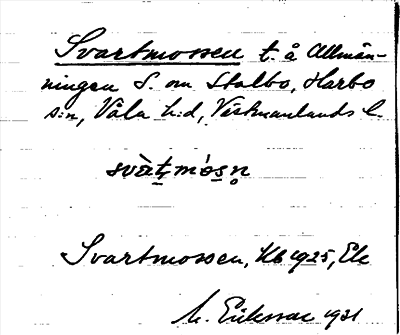 Svartmossen t. å Allmän-
ningen S. om Stalbo, Harbo
s:n, Våla h:d, Västmanlands l.
svàt̠mósn̥
Svartmossen, Kb 1925, Ek
M. Eriksson 1931